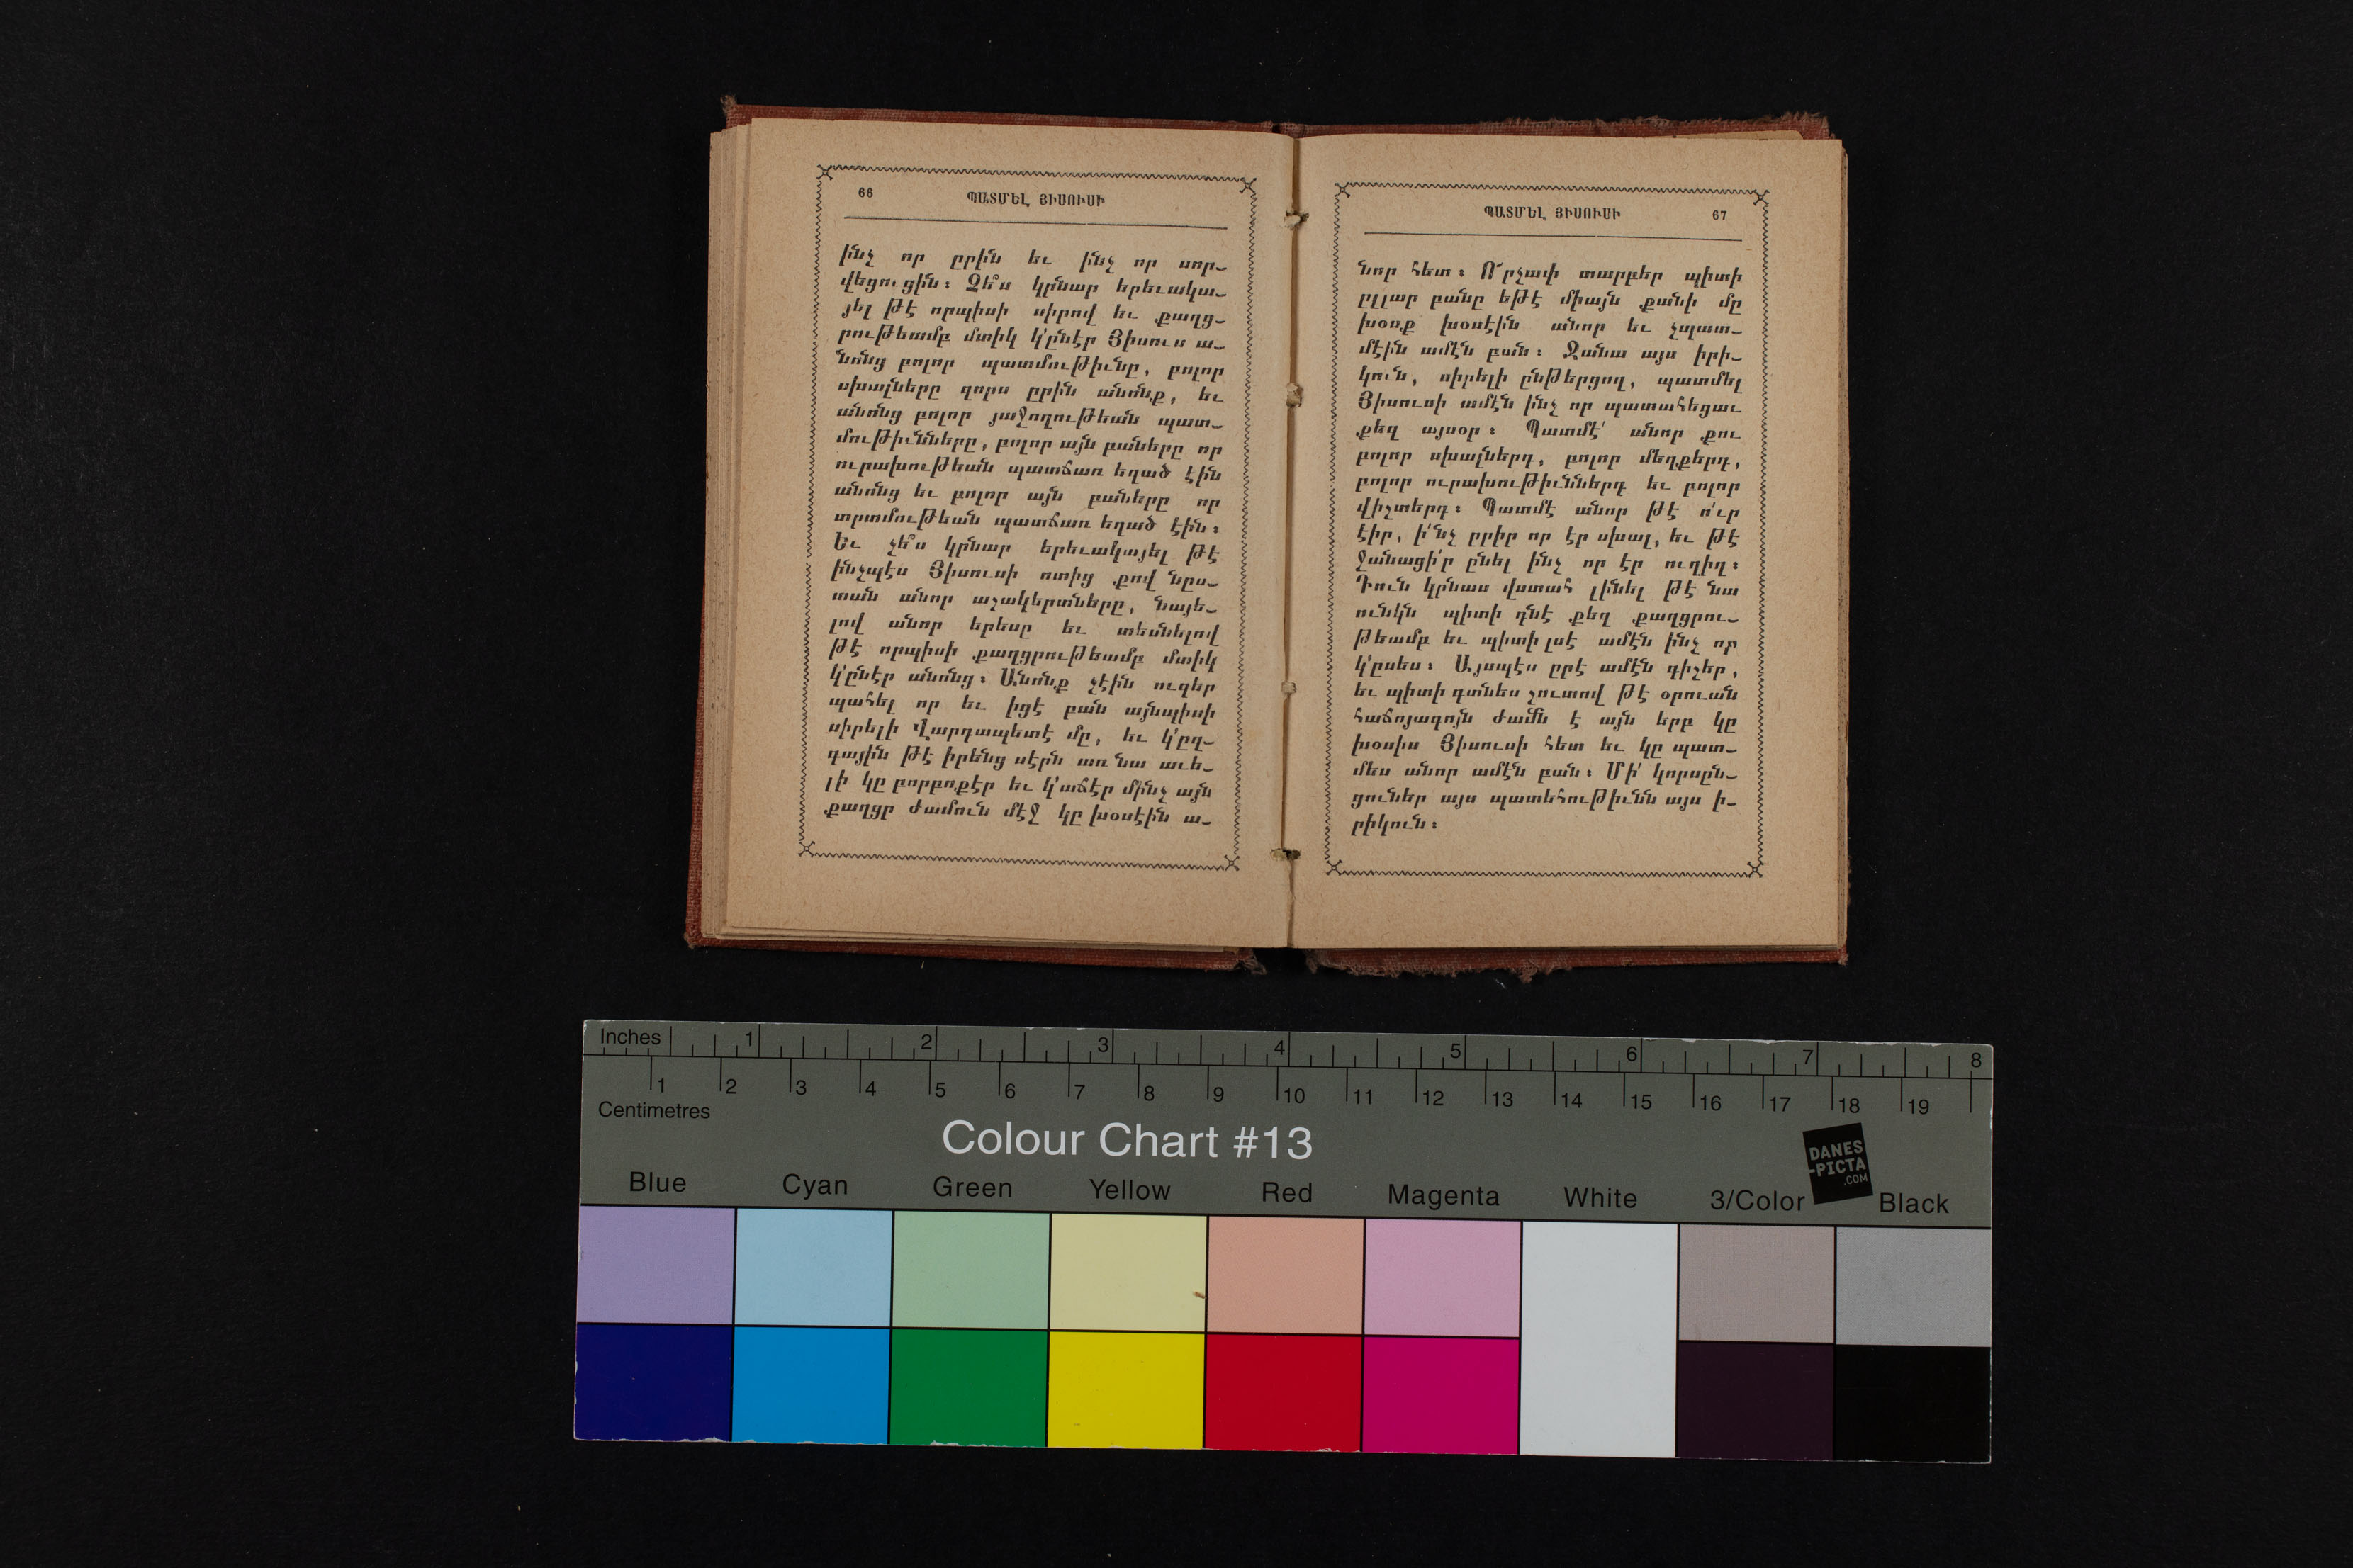 66
ՊԱՏՄԵԼ ՅԻՍՈՒՍԻ
ինչ որ ըրին եւ ինչ որ սոր-
վեցուցին։ Չե՞ս կրնար երեւակա-
յել թէ որպիսի սիրով եւ քաղց-
րութեամբ մտիկ կ՚ընէր Յիսուս ա-
նոնց բոլոր պատմութիւնը, բոլոր
սխալները զորս ըրին անոնք, եւ
անոնց բոլոր յաջողութեան պատ-
մութիւնները, բոլոր այն բաները որ
ուրախութեան պատճառ եղած էին
անոնց եւ բոլոր այն բաները որ
տրտմութեան պատճառ եղած էին։
Եւ չե՞ս կրնար երեւակայել թէ
ինչպէս Յիսուսի ոտից քով նըս-
տան անոր աշակերտները, նայե-
լով անոր երեսը եւ տեսնելով
թէ որպիսի քաղցրութեամբ մտիկ
կ՚ընէր անոնց։ Անոնք չէին ուզեր
պահել որ եւ իցէ բան այնպիսի
սիրելի Վարդապետէ մը, եւ կ՚ըզ-
գային թէ իրենց սէրն առ նա աւե-
լի կը բորբոքէր եւ կ՚աճէր մինչ այն
քաղցր ժամուն մէջ կը խօսէին ա-
ՊԱՏՄԵԼ ՅԻՍՈՒՍԻ
67
նոր հետ։ Ո՜րչափ տարբեր պիտի
ըլլար բանը եթէ միայն քանի մը
խօսք խօսէին անոր եւ չպատ-
մէին ամէն բան։ Ջանա այս իրի-
կուն, սիրելի ընթերցող, պատմել
Յիսուսի ամէն ինչ որ պատահեցաւ
քեզ այսօր։ Պատմէ՛ անոր քու
բոլոր սխալներդ, բոլոր մեղքերդ,
բոլոր ուրախութիւններդ եւ բոլոր
վիշտերդ։ Պատմէ անոր թէ ո՛ւր
էիր, ի՛նչ ըրիր որ էր սխալ, եւ թէ
ջանացի՛ր ընել ինչ որ էր ուղիղ։
Դուն կրնաս վստահ լինել թէ նա
ունկն պիտի դնէ քեզ քաղցրու-
թեամբ եւ պիտի լսէ ամէն ինչ որ
կ՚ըսես։ Այսպէս ըրէ ամէն գիշեր,
եւ պիտի գտնես շուտով թէ օրուան
հաճոյագոյն ժամն է այն երբ կը
խօսիս Յիսուսի հետ եւ կը պատ-
մես անոր ամէն բան։ Մի՛ կորսըն-
ցուներ այս պատեհութիւնն այս ի-
րիկուն։
Inches
1 2 3 4 5 6 7 8
1 2 3 4 5 6 7 8 9 10 11 12 13 14 15 16 17 18 19
Centimetres
Colour Chart #13
DANES
-PICTA
.COM
Blue Cyan Green Yellow Red Magenta White 3/Color Black